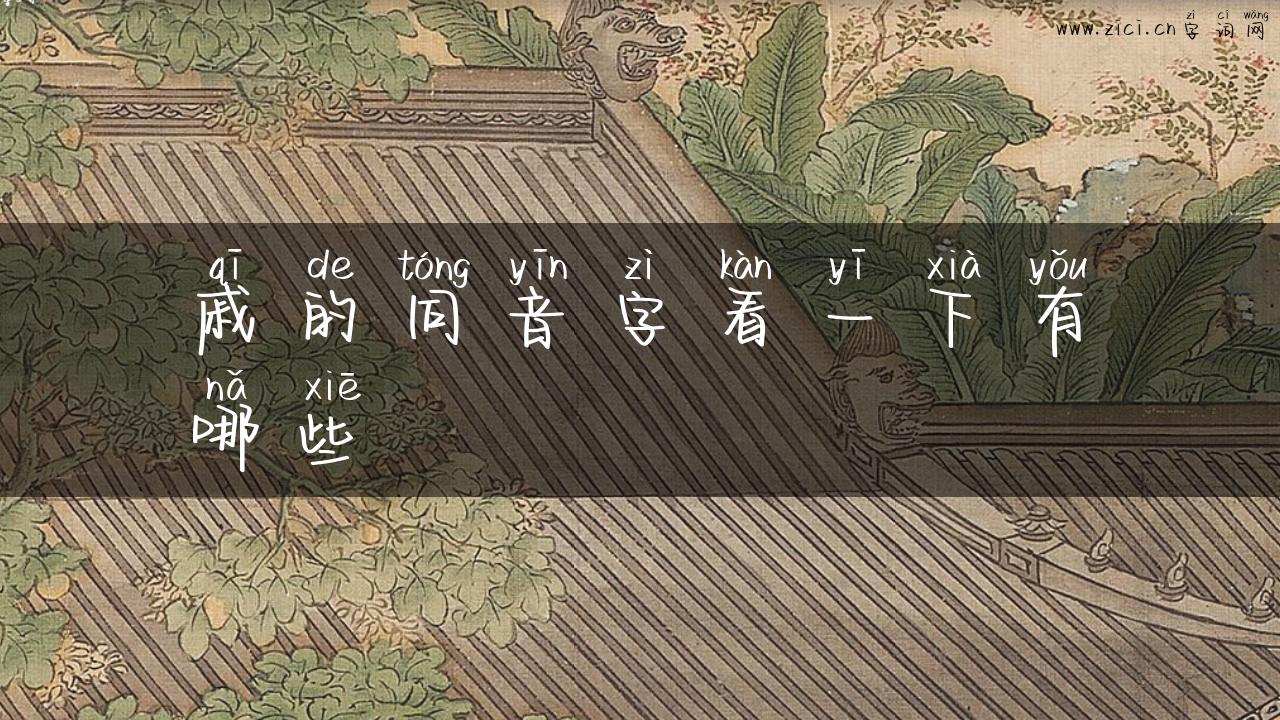 zì cí wǎng
www.zici.cn 字 词 网
qī de tóng yīn zì kàn yī xià yǒu
戚 的 同 音 字 看 一 下 有
nǎ xiē
哪 些